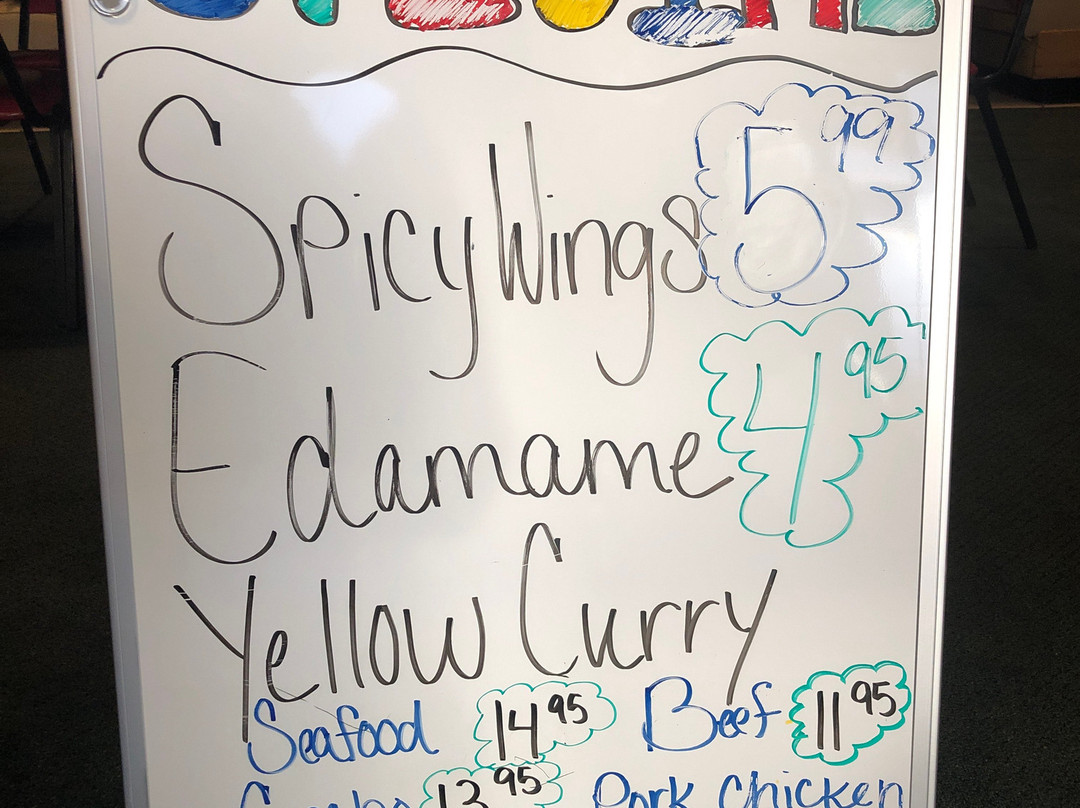 Spicy Wings 5 99
Edamame 4 95
Yellow Curry
Seafood 14 95 Beef 11 95
13 95 Pork Chicken